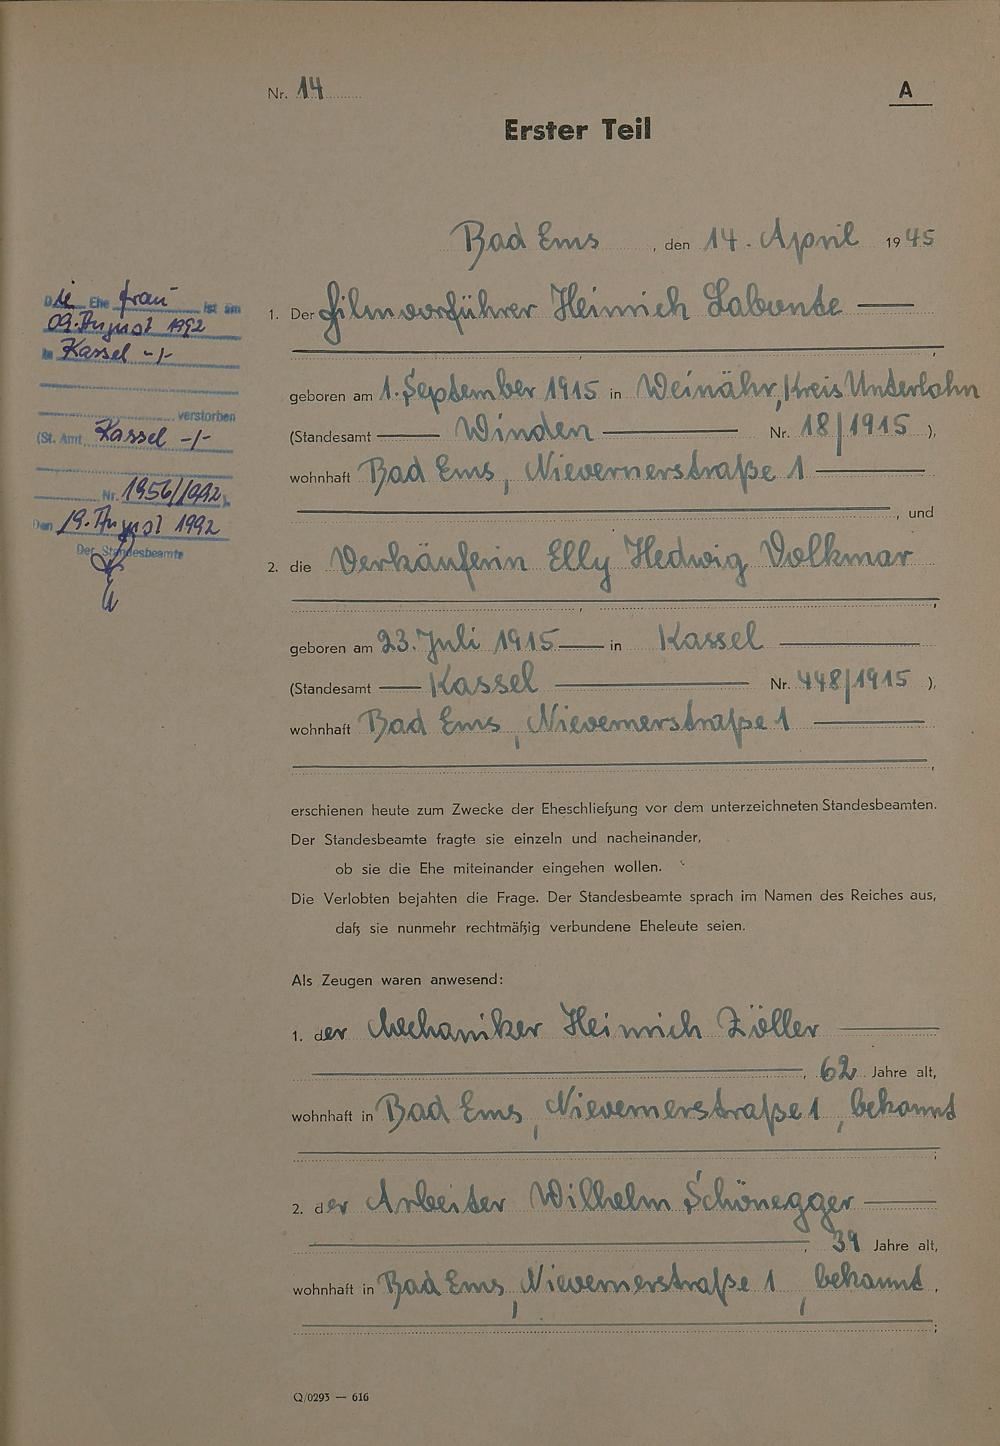 Nr. 14
A
Erster Teil
Bad Ems, den 14. April 1945
Die Ehefrau ist am
09. August 1992
in Kassel -/-
verstorben
(St. Amt Kassel -/-
Nr. 1956/1992).
Den 19. August 1992
Der Standesbeamte
1. Der Filmvorführer Heinrich Labonte
,
geboren am 1. September 1915 in Weinähr, Kreis Unterlahn
(Standesamt Winden Nr. 18/1915 ),
wohnhaft Bad Ems, Nievernerstraße 1
, und
2. die Verkäuferin Elly Hedwig Volkmar
,
geboren am 23. Juli 1915 in Kassel
(Standesamt Kassel Nr. 448/1915 ),
wohnhaft Bad Ems, Nievernerstraße 1
,
erschienen heute zum Zwecke der Eheschließung vor dem unterzeichneten Standesbeamten.
Der Standesbeamte fragte sie einzeln und nacheinander,
ob sie die Ehe miteinander eingehen wollen.
Die Verlobten bejahten die Frage. Der Standesbeamte sprach im Namen des Reiches aus,
daß sie nunmehr rechtmäßig verbundene Eheleute seien.
Als Zeugen waren anwesend:
1. der Mechaniker Heinrich Zöller
, 62 Jahre alt,
wohnhaft in Bad Ems, Nievernerstraße 1, bekannt
;
2. der Arbeiter Wilhelm Schönegger
, 39 Jahre alt,
wohnhaft in Bad Ems, Nievernerstraße 1, bekannt.
;
Q/0293 — 616